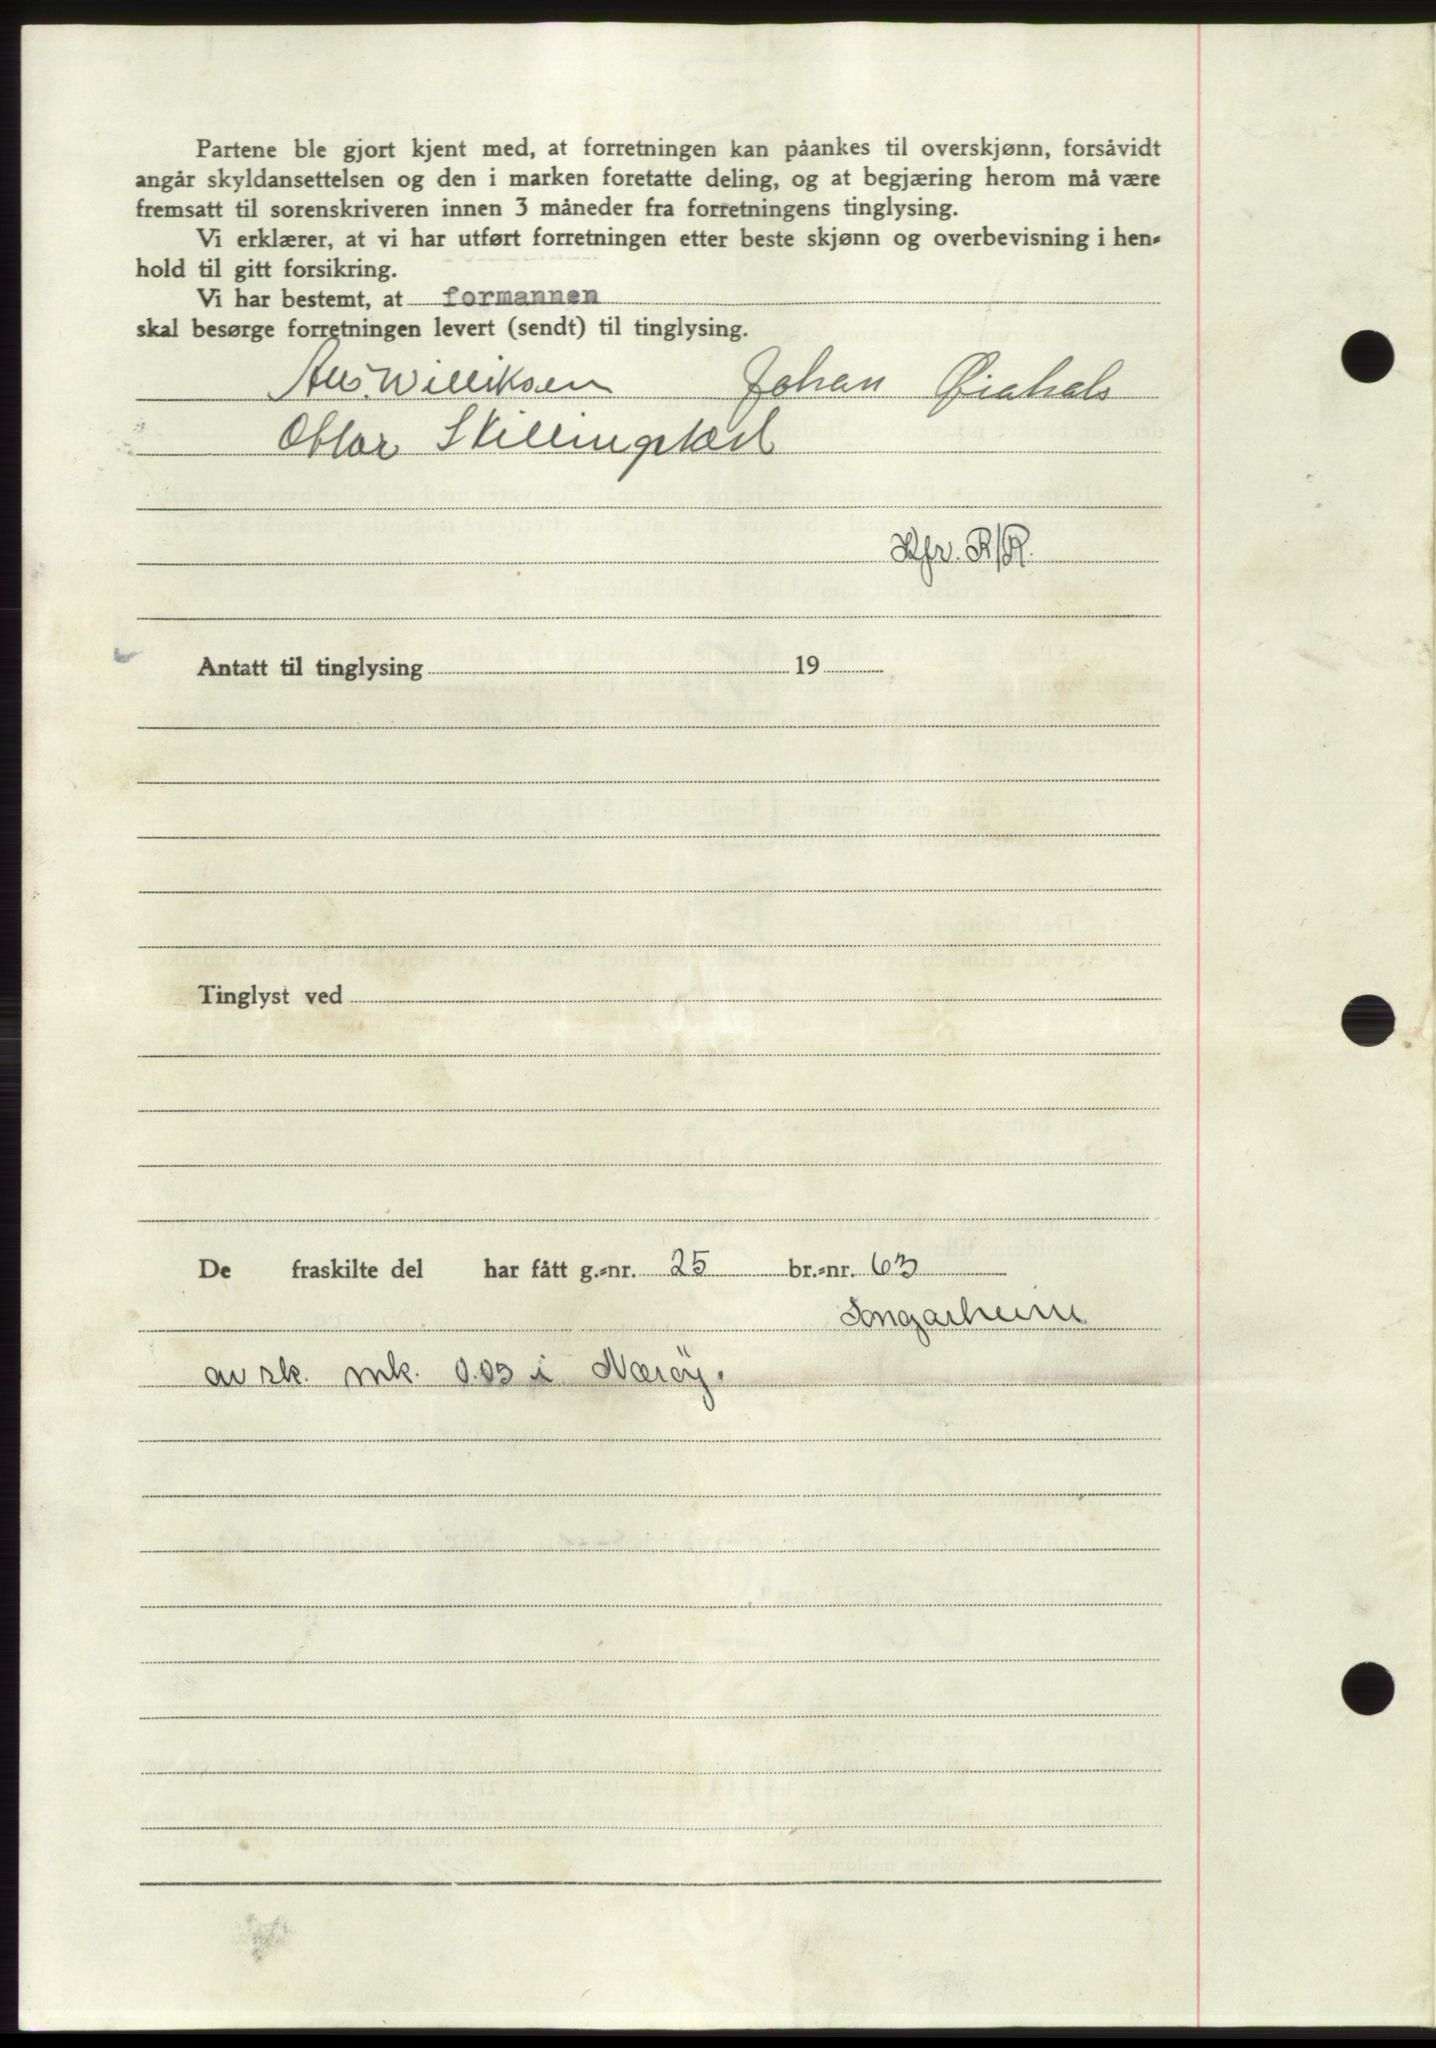 Partene ble gjort kjent med, at forretningen kan påankes til overskjønn, forsåvidt
angår skyldansettelsen og den i marken foretatte deling, og at begjæring herom må være
fremsatt til sorenskriveren innen 3 måneder fra forretningens tinglysing.
Vi erklærer, at vi har utført forretningen etter beste skjønn og overbevisning i hen-
hold til gitt forsikring.
Vi har bestemt, at formannen
skal besørge forretningen levert (sendt) til tinglysing.
Williksen Johan
Skillingstad
Kfr. R/R.
Antatt til tinglysing 19
Tinglyst ved
De fraskilte del har fått g.-nr. 25 br.-nr. 63
av sk. mk. 0.03 i Nærøy.